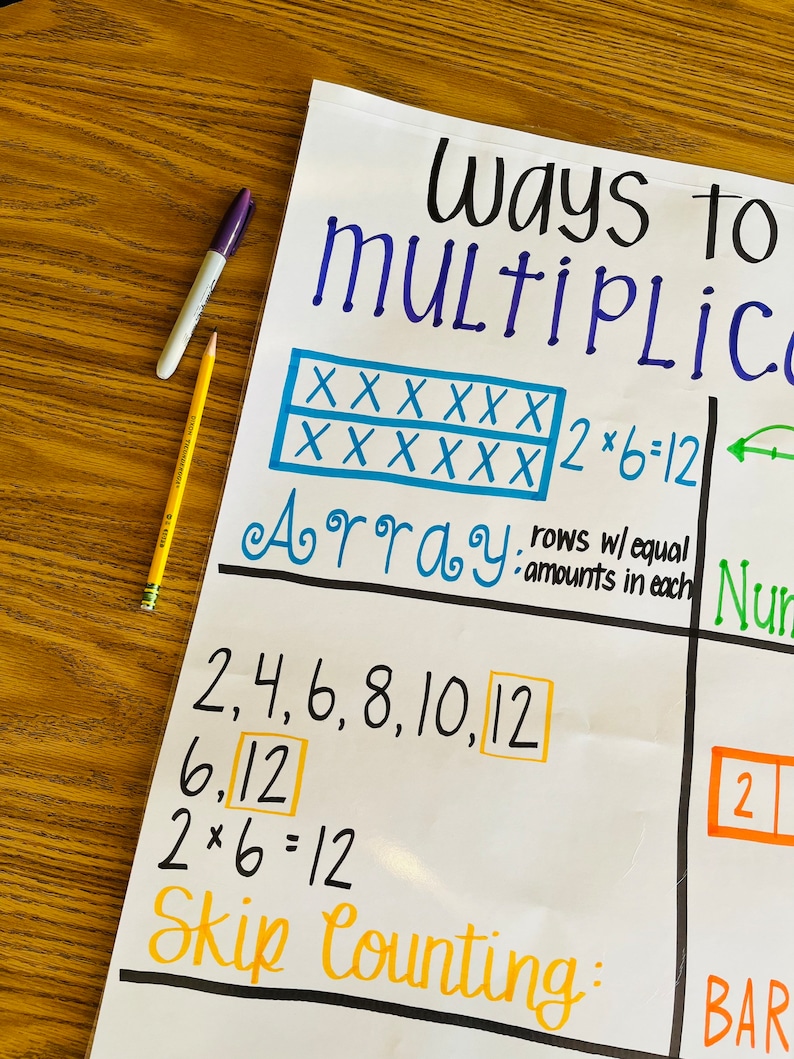 Ways to
MULTIPLICA
X X X X X X
X X X X X X
2 × 6 = 12
Array: rows w/ equal
amounts in each
Num
2, 4, 6, 8, 10, 12
6, 12
2 × 6 = 12
Skip Counting:
2
BAR